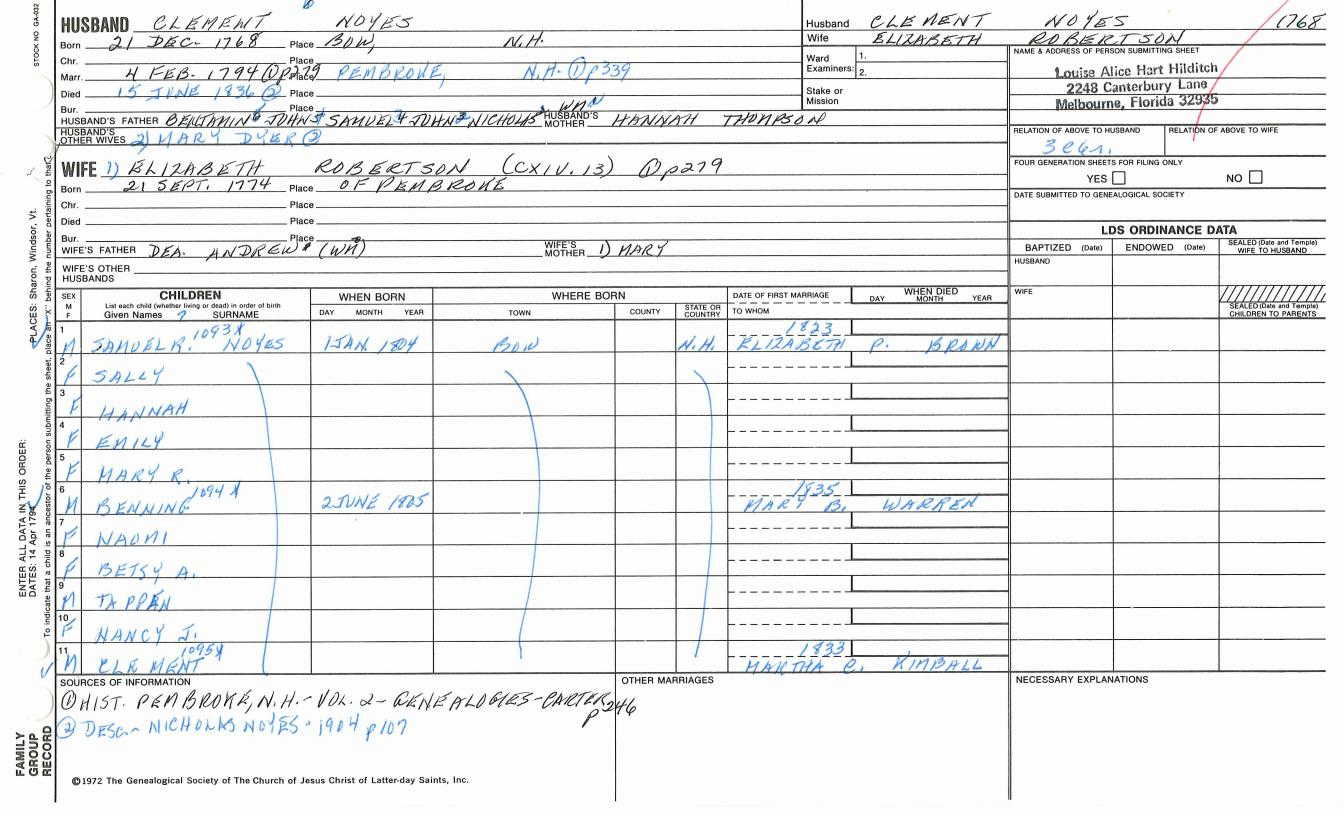 STOCK NO. GA-032
HUSBAND CLEMENT NOYES
Born 21 DEC. 1768 Place BOW, N.H.
Chr. Place
Marr. 4 FEB. 1794 ① p279 Place PEMBROKE, N.H. ① p339
Died 15 JUNE 1836 ② Place
Bur. Place
HUSBAND'S FATHER BENJAMIN JOHN SAMUEL JOHN NICHOLAS WM HUSBAND'S MOTHER HANNAH THOMPSON
HUSBAND'S OTHER WIVES 2) MARY DYER ②
WIFE 1) ELIZABETH ROBERTSON (CXIV. 13) ① p279
Born 21 SEPT. 1774 Place OF PEMBROKE
Chr. Place
Died Place
Bur. Place
WIFE'S FATHER DEA. ANDREW (WM) WIFE'S MOTHER 1) MARY
WIFE'S OTHER HUSBANDS
Husband CLEMENT NOYES 1768
Wife ELIZABETH ROBERTSON
Ward Examiners: 1. 2.
Stake or Mission
NAME & ADDRESS OF PERSON SUBMITTING SHEET
Louise Alice Hart Hilditch
2248 Canterbury Lane
Melbourne, Florida 32935
RELATION OF ABOVE TO HUSBAND RELATION OF ABOVE TO WIFE
FOUR GENERATION SHEETS FOR FILING ONLY
YES NO
DATE SUBMITTED TO GENEALOGICAL SOCIETY
LDS ORDINANCE DATA
BAPTIZED (Date) ENDOWED (Date) SEALED (Date and Temple) WIFE TO HUSBAND
HUSBAND
WIFE
SEALED (Date and Temple) CHILDREN TO PARENTS
SEX M F CHILDREN WHEN BORN WHERE BORN DATE OF FIRST MARRIAGE WHEN DIED
List each child (whether living or dead) in order of birth
Given Names ? SURNAME DAY MONTH YEAR TOWN COUNTY STATE OR COUNTRY TO WHOM DAY MONTH YEAR
1 1093X 1823
M SAMUEL R. NOYES 1 JAN. 1804 BOW N.H. ELIZABETH P. BROWN
2 F SALLY
3 F HANNAH
4 F EMILY
5 F MARY R.
6 1094X 1835
M BENNING 2 JUNE 1805 MARY B. WARREN
7 F NAOMI
8 F BETSY A.
9 M TAPPAN
10 F NANCY J.
11 1095X 1833
M CLEMENT MARTHA C. KIMBALL
SOURCES OF INFORMATION OTHER MARRIAGES NECESSARY EXPLANATIONS
① HIST. PEMBROKE, N.H. - VOL. 2 - GENEALOGIES - CARTER p 246
② DESC. - NICHOLAS NOYES - 1904 p 107
©1972 The Genealogical Society of The Church of Jesus Christ of Latter-day Saints, Inc.
FAMILY GROUP RECORD
ENTER ALL DATA IN THIS ORDER:
DATES: 14 Apr 1794
PLACES: Sharon, Windsor, Vt.
To indicate that a child is an ancestor of the person submitting the sheet, place an "X" behind the number pertaining to that